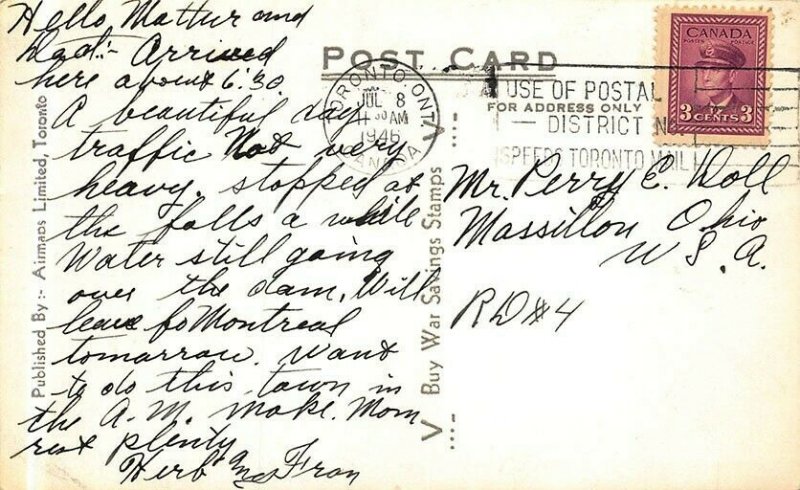 Hello, Mattur and
Dad:- Arrived
here about 6:30
A beautiful day
traffic Not very
heavy. stopped at
the falls a while
Water still going
over the dam. Will
leave fo Montreal
tomorrow. Want
to do this town in
the A.M. make Mom
rest plenty
Herb and Fran
Published By:- Airmaps Limited, Toronto
POST CARD
V ... – Buy War Savings Stamps V ... –
TORONTO ONT.
JUL 8
11 30 AM
1946
CANADA
USE OF POSTAL
FOR ADDRESS ONLY
DISTRICT N
SPEEDS TORONTO MAIL
CANADA
POSTES POSTAGE
3 CENTS 3
Mr. Perry E. Doll
Massillon, Ohio
U.S.A.
RD#4